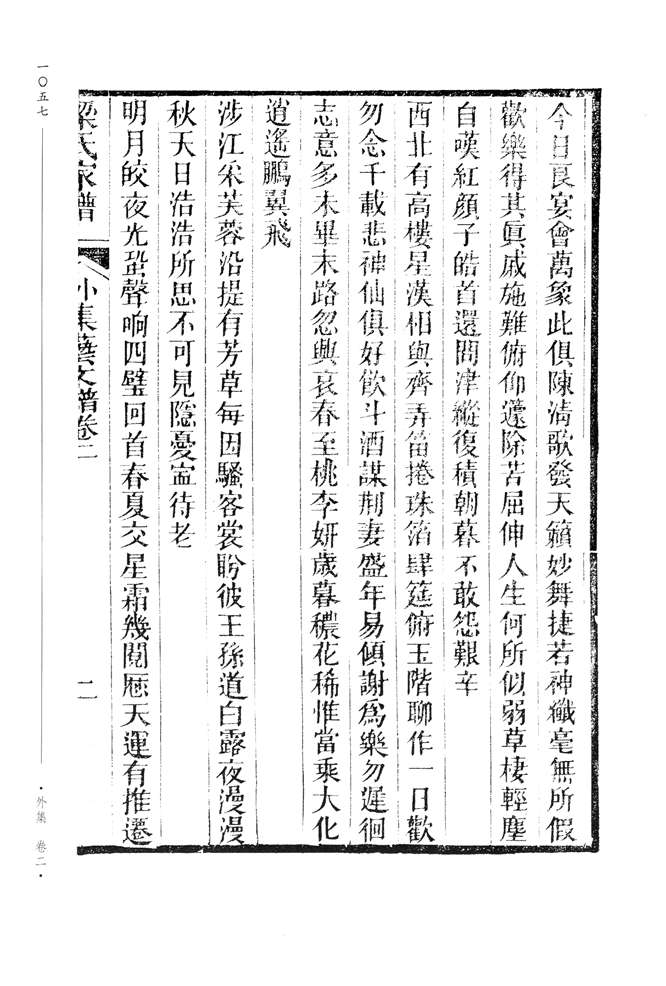 今日良宴會萬象此俱陳淸歌發天籟妙舞捷若神纖毫無所假
歡樂得其眞戚施難俯仰籧除苦屈伸人生何所似弱草棲輕塵
自嘆紅顏子皓首還問津縱復積朝暮不敢怨艱辛
西北有高樓星漢相與齊弄笛捲珠箔肆筵俯玉階聊作一日歡
勿念千載悲神仙俱好飮斗酒謀荆妻盛年易傾謝爲樂勿遲徊
志意多未畢末路忽興哀春至桃李姸歲暮穠花稀惟當乘大化
逍遙鵬翼飛
涉江采芙蓉沿提有芳草每因騷客裳盻彼王孫道白露夜漫漫
秋天日浩浩所思不可見隱憂寍待老
明月皎夜光蛩聲响四璧回首春夏交星霜幾閱厯天運有推遷
梁氏家譜 外集藝文譜卷二 二
一〇五七
·外集 卷二·